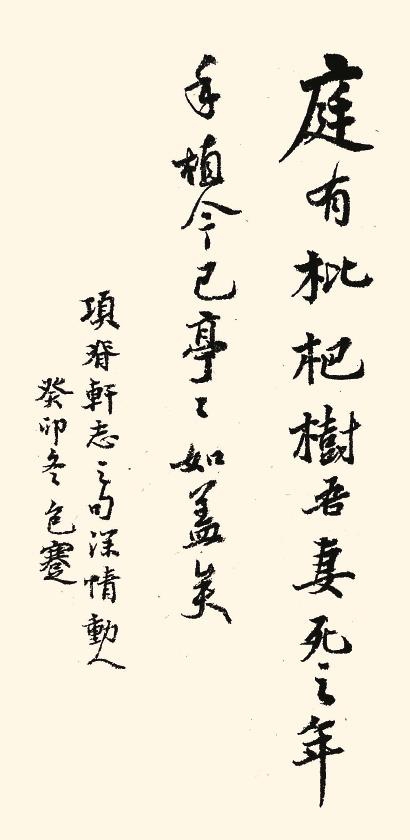 庭有枇杷樹吾妻死之年
手植今已亭〻如蓋矣
項脊軒志之句深情動人
癸卯冬包蹇